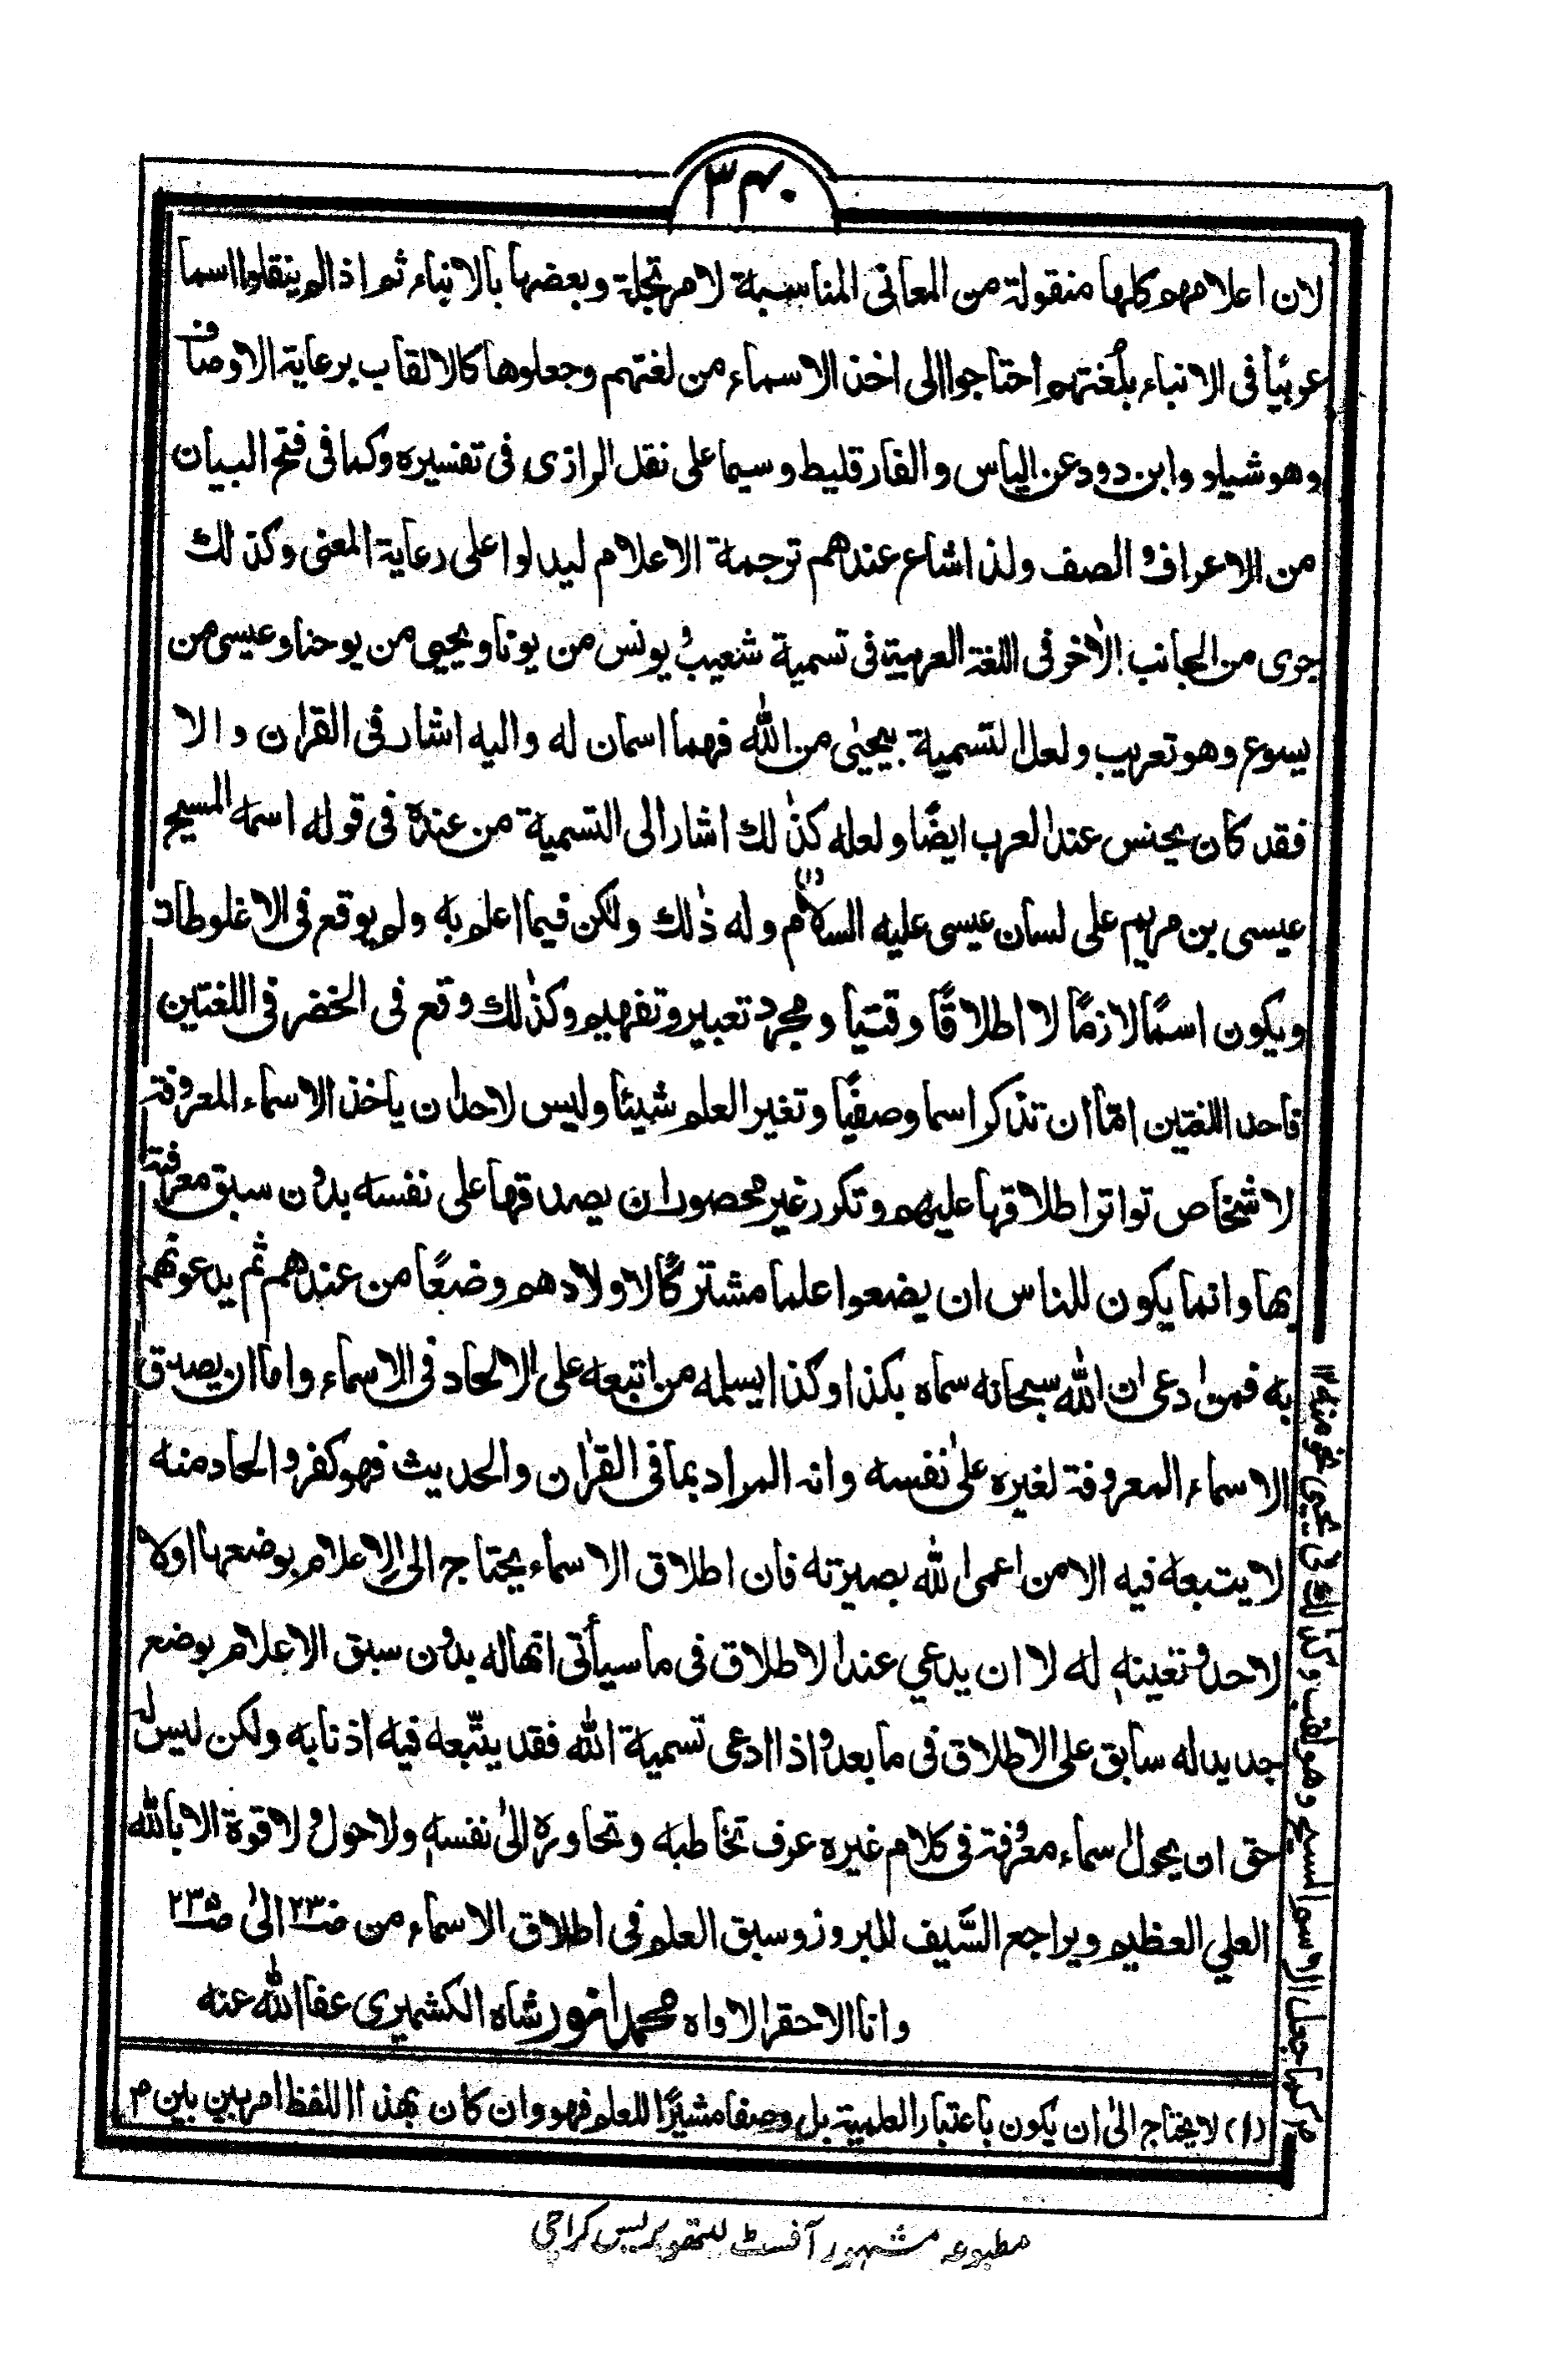 ۳۴۰
لان اعلامهم كلها منقولة من المعانى المناسبة لا مرتجلة وبعضها بالانباء ثم اذا لم ينقلوا اسما
عربيًا فى الانباء بلُغتهم احتاجوا الى اخذ الاسماء من لغتهم وجعلوها كالالقاب برعاية الاوصاف
وهو شيلو وابن دود عن الياس والفارقليط وسيما على نقل الرازى فى تفسيره وكما فى فتح البيان
من الاعراف والصف ولذا شاع عندهم ترجمة الاعلام ليدلوا على رعاية المعنى وكذلك
جرى من الجانب الاٰخر فى اللغة العربية فى تسمية شعيب ويونس من يونا ويحيى من يوحنا وعيسى من
يسوع وهو تعريب ولعل التسمية بيحيىٰ من اللّٰه فهما اسمان له واليه اشار فى القراٰن والا
فقد كان يحنس عند العرب ايضًا ولعله كذٰلك اشار الى التسمية من عنده فى قوله اسمه المسيح
عيسى بن مريم على لسان عيسى عليه السلام (۱) وله ذٰلك ولكن فيما اعلم به ولم يوقع فى الاغلوطات
ويكون اسمًا لازمًا لا اطلاقًا وقتيا ومجرد تعبير وتفهيم وكذٰلك وقع فى الخضر فى اللغتين
فاحد اللغتين امّا ان تذكر اسما وصفيًا وتغير العلم شيئا وليس لاحد ان ياخذ الاسماء المعروفة
لاشخاص تواتر اطلاقها عليهم وتكرر غير محصور ان يصدقها على نفسه بدون سبق معرفة
بها وانما يكون للناس ان يضعوا علما مشتركًا لاولادهم وضعًا من عندهم ثم يدعونهم
به فمن ادعى ان اللّٰه سبحانه سماه بكذا وكذا يسلمه من اتبعه على الالحاد فى الاسماء واما ان يصدق
الاسماء المعروفة لغيره علىٰ نفسه وانه المراد بما فى القراٰن والحديث فهو كفر والحاد منه
لا يتبعه فيه الا من اعمى اللّٰه بصيرته فان اطلاق الاسماء يحتاج الى الاعلام بوضعها اولا
لاحد وتعينه له لا ان يدعي عند الاطلاق فى ما سيأتى انها له بدون سبق الاعلام بوضع
جديد له سابق على الاطلاق فى ما بعد واذا ادعى تسمية اللّٰه فقد يتّبعه فيه اذنابه ولكن ليس له
حق ان يحول اسماء معروفة فى كلام غيره عرف تخاطبه وتحاوره الىٰ نفسه ولا حول ولا قوة الا باللّٰه
العلي العظيم ويراجع السَّيف للبروز وسبق العلم فى اطلاق الاسماء من الىٰ
وانا الاحقر الاواه محمد انور شاه الكشميرى عفا اللّٰه عنه
(۱) لا يحتاج الىٰ ان يكون باعتبار العلمية بل وصفا مشيرًا للعلم فهو وان كان بهذا اللفظ امر بين بين م
م كما جعل الاسم المسيح وهو لقب وكذلك فى عيسى منه ۱۲
مطبوعہ مشہور آفسٹ لیتھو پریس کراچی